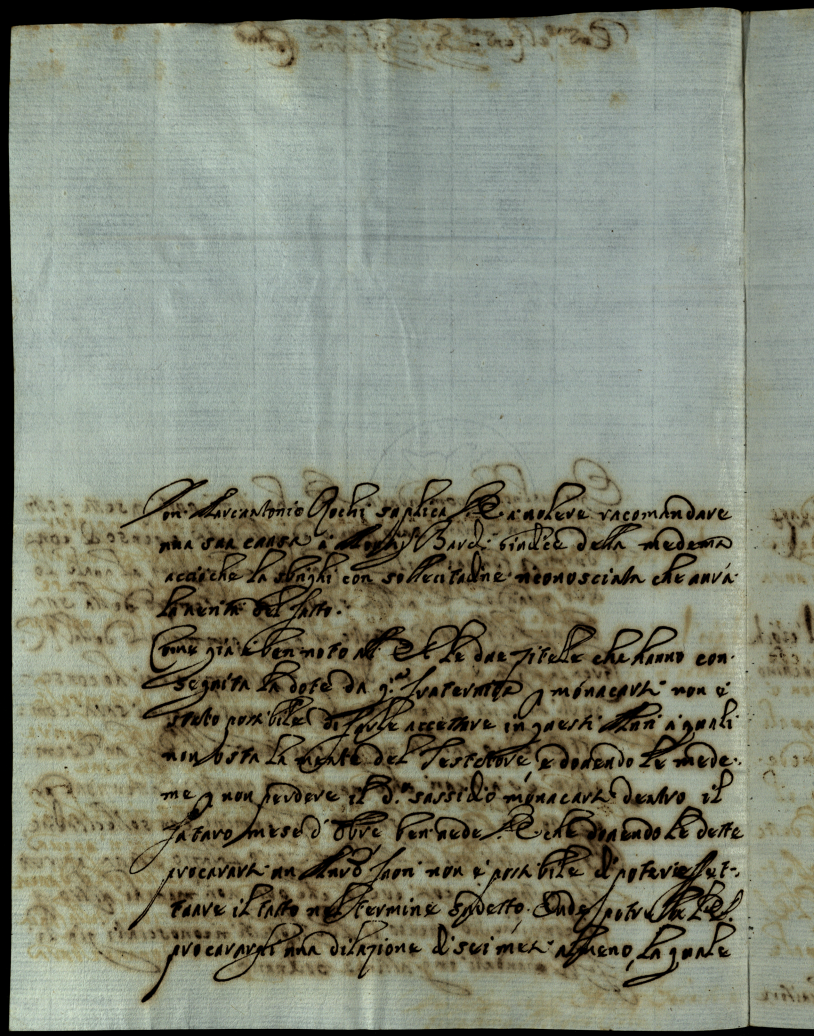 Don Marcantonio Rochi suplica V.E. à volere racomandare
una sua causa à Bardi Giudice della medema
acciò che la sbrighi con sollecitudine riconosciuta che avrà
la verità del fatto.
Come già è ben noto all' E.V. le due zitele che hanno con-
seguita la dote da q.ta fraternità p monacarsi non è
stato possibile di farle accettare in questi à quali
non osta la mente del Testatore, e dovendo le mede-
me p non perdere il d.o sussidio monacarsi dentro il
futuro mese d' 8bre ben vede V.E. che dovendo le dette
procurarsi un fuori non è possibile di potere effet-
tuare il tutto nel termine sudetto. Onde potre
procurargli una dilazione di sei mesi almeno, la quale